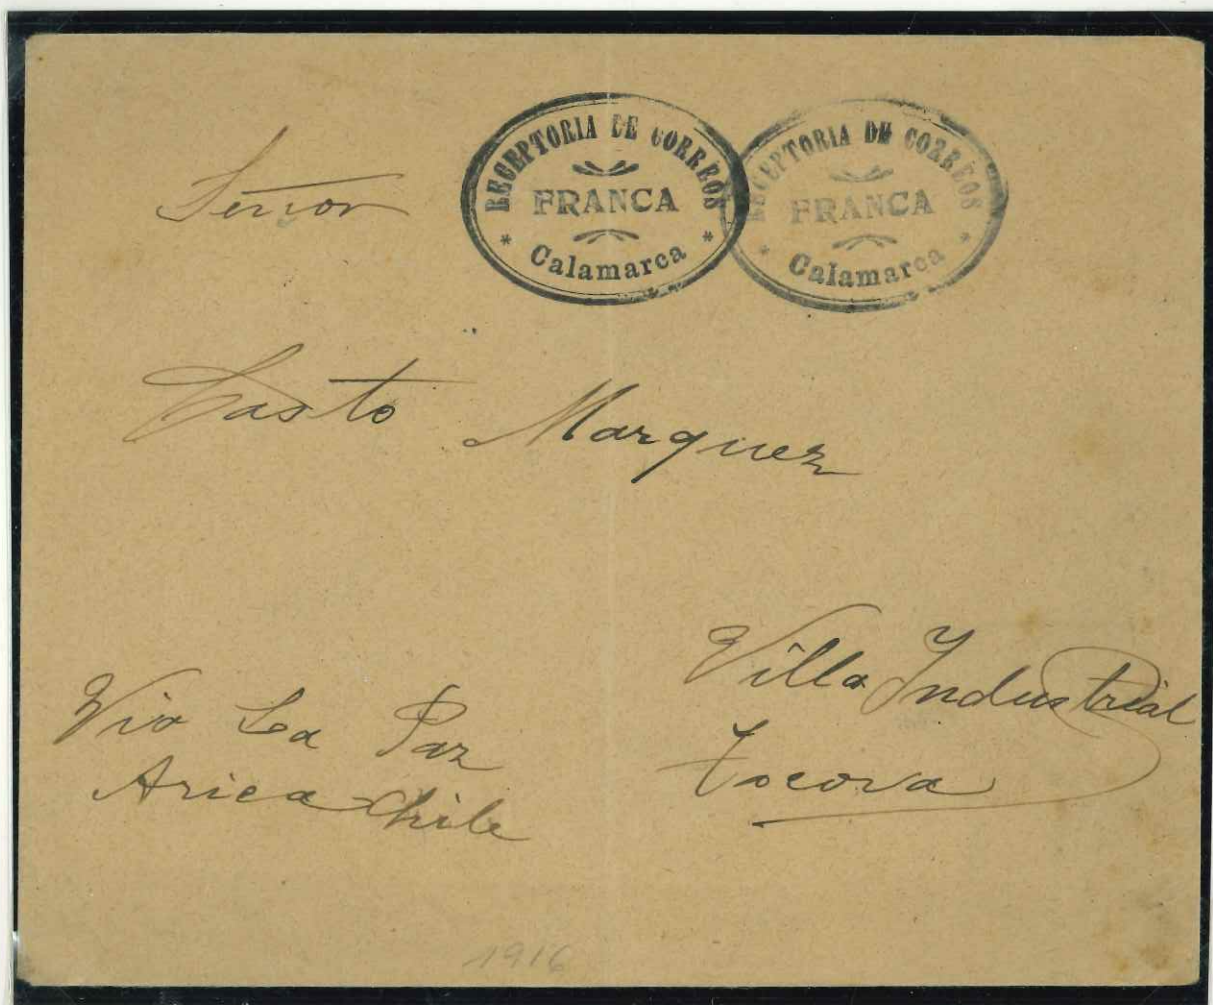 RECEPTORIA DE CORREOS
FRANCA
* Calamarca *
RECEPTORIA DE CORREOS
FRANCA
* Calamarca *
Señor
Casto Marquez
Villa Industrial
Tocora
Via La Paz
Arica Chile
1916